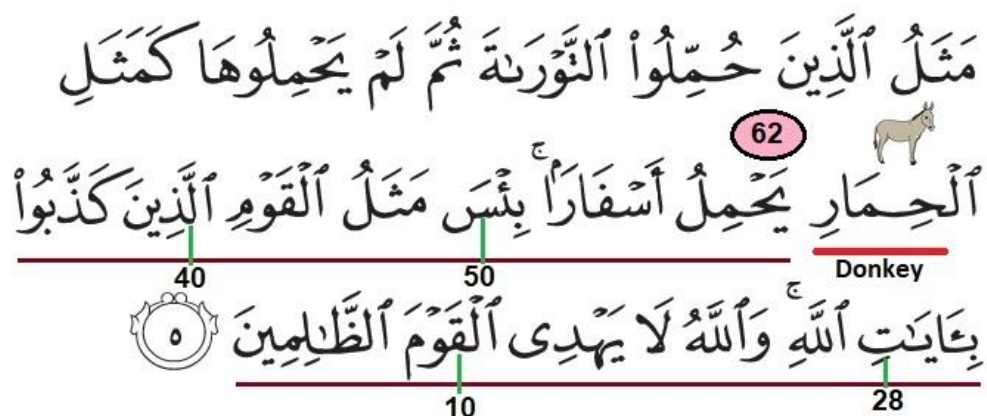 مَثَلُ ٱلَّذِينَ حُمِّلُوا۟ ٱلتَّوْرَىٰةَ ثُمَّ لَمْ يَحْمِلُوهَا كَمَثَلِ
62
ٱلْحِمَارِ يَحْمِلُ أَسْفَارًۢا ۚ بِئْسَ مَثَلُ ٱلْقَوْمِ ٱلَّذِينَ كَذَّبُوا۟
Donkey
50
40
بِـَٔايَـٰتِ ٱللَّهِ ۚ وَٱللَّهُ لَا يَهْدِى ٱلْقَوْمَ ٱلظَّـٰلِمِينَ ٥
28
10